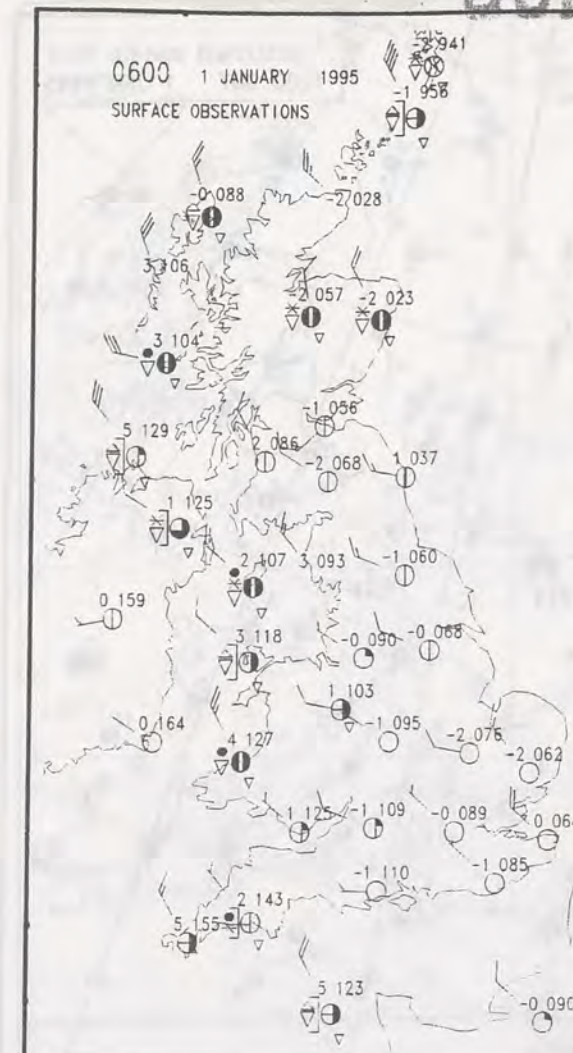 -2 941
0600 1 JANUARY 1995
SURFACE OBSERVATIONS
-1 956
-0 088
-2 028
3 106
-2 057
-2 023
3 104
-1 056
5 129
2 086
-2 068
1 037
1 125
2 107
3 093
-1 060
0 159
3 118
-0 090
-0 068
1 103
0 164
-1 095
-2 076
4 127
-2 062
1 125
-1 109
-0 089
0 064
-1 085
-1 110
2 143
5 155
5 123
-0 090